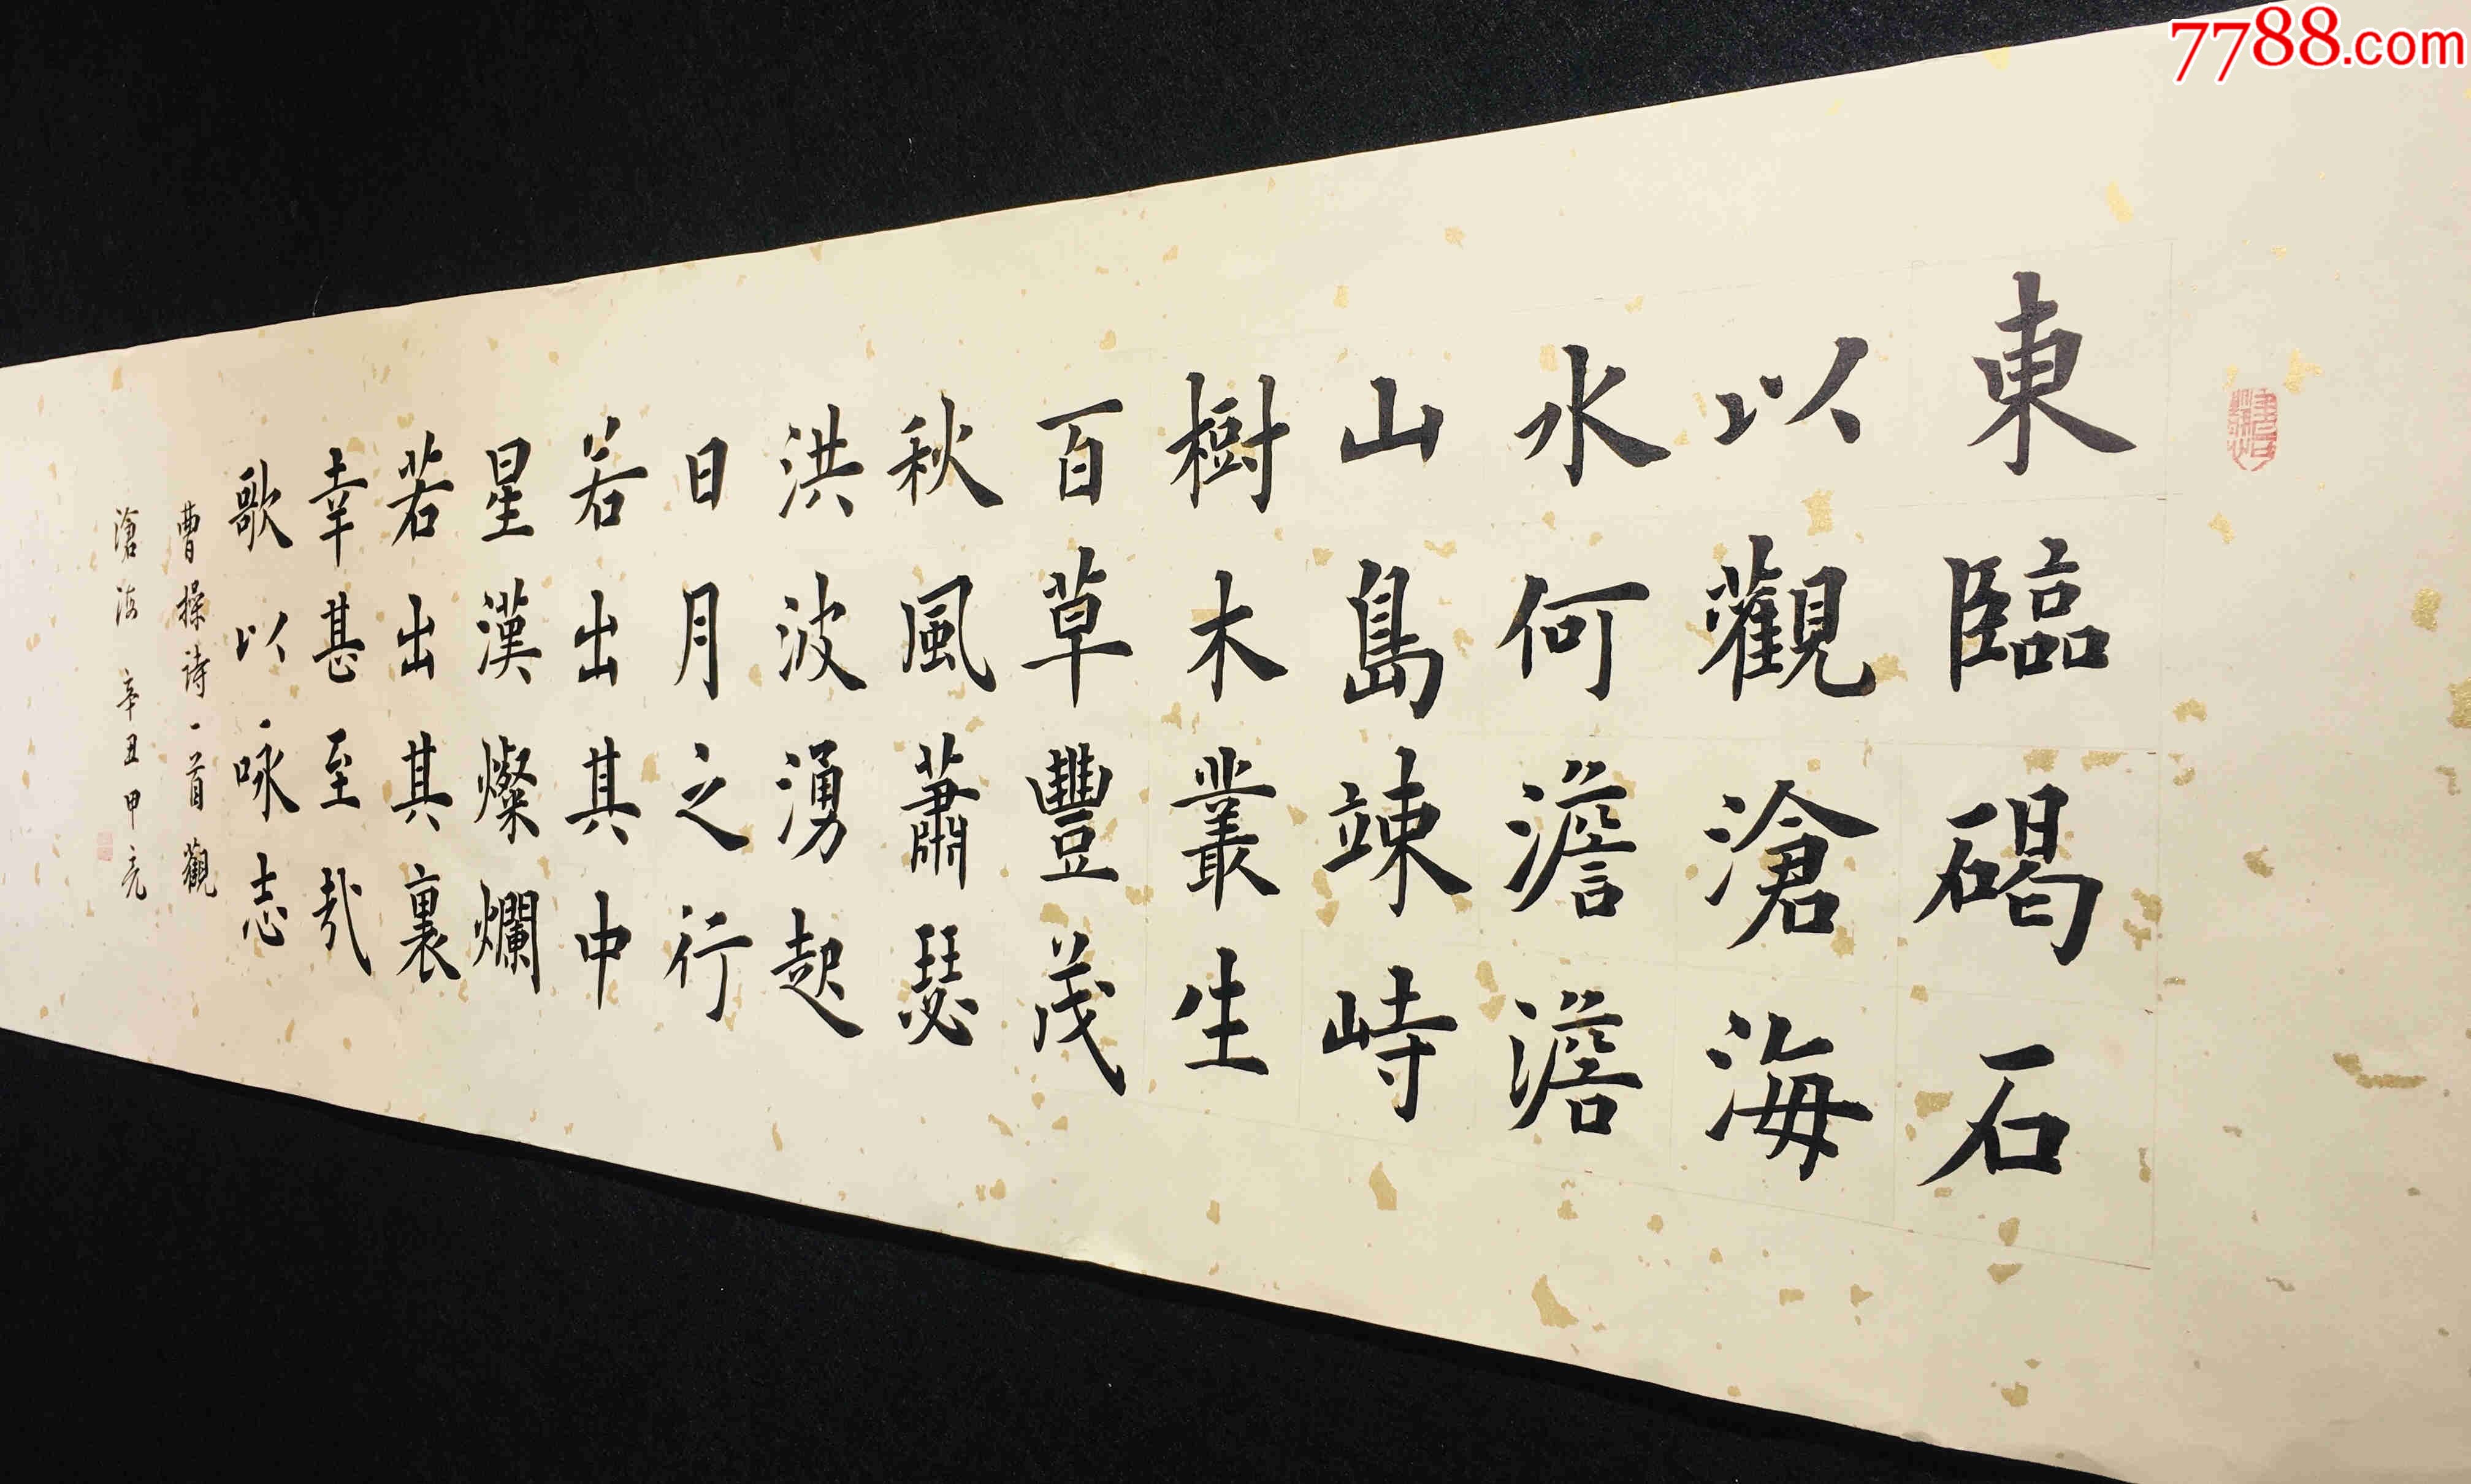 東臨碣石
以觀滄海
水何澹澹
山島竦峙
樹木叢生
百草豐茂
秋風蕭瑟
洪波湧起
日月之行
若出其中
星漢燦爛
若出其裏
幸甚至哉
歌以咏志
曹操诗一首觀
滄海 辛丑甲亮
7788.com